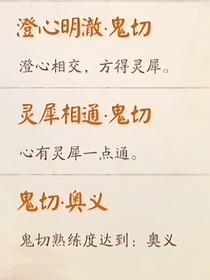 澄心明澈·鬼切
澄心相交，方得灵犀。
灵犀相通·鬼切
心有灵犀一点通。
鬼切·奥义
鬼切熟练度达到：奥义